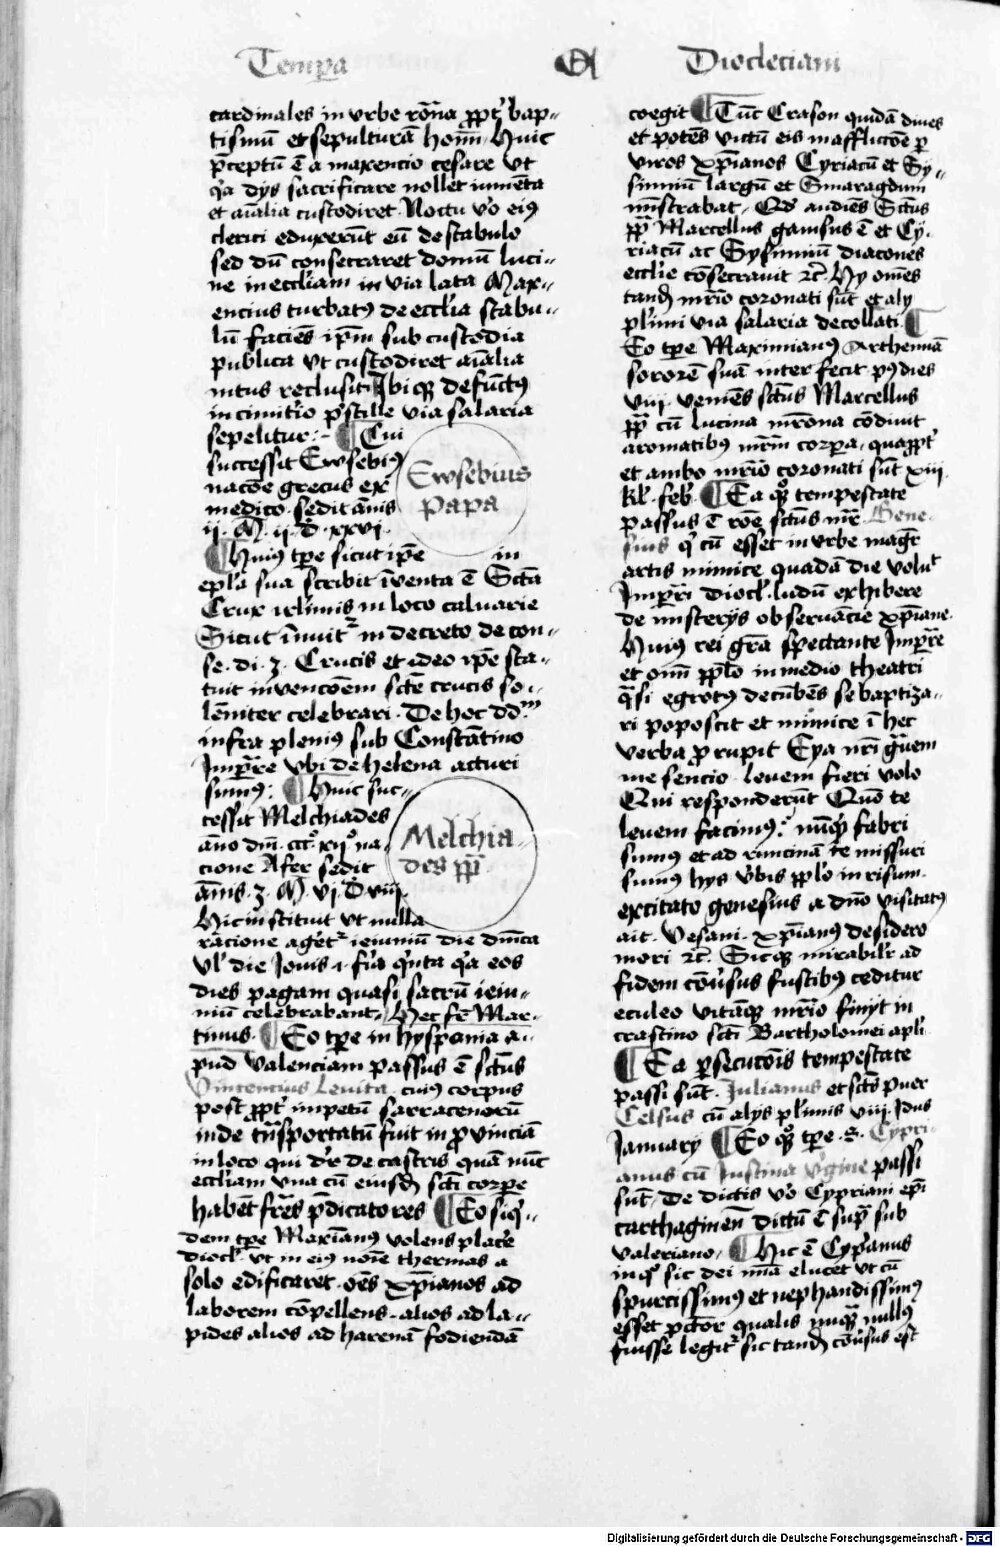 Tempa Diocleciani
cardinales in vrbe roma ppt bap-
tismu et sepultura hom Huic
pceptu e a maxencio cesare vt
qa dys sacrificare nollet iumeta
et aialia custodiret Noctu vo eiꝰ
clerici eduxerut eu de stabulo
sed du consecraret domu luci-
ne in eccliam in via lata Max-
encius turbatꝰ de ecclia stabu-
lu facies ipm sub custodia
publica vt custodiret aialia
intus reclusit Ibiqꝫ defuctꝰ
in cimitio pstille via salaria
sepelitur ¶ Cui
successit Ewsebiꝰ
nacoe grecus ex
medico sedit anis
ij. M. ij. d. xxvi.
Ewsebius
papa
¶ Huiꝰ tpe sicut ipe in
epla sua scribit iventa e Scta
Crux irlimis in loco caluarie
Sicut inuitr in decreto de con-
se. di. 3. Crucis et ideo ipe sta-
tuit invencoem scte crucis so-
leniter celebrari. De hoc dd
infra pleniꝰ sub Constatino
Impre vbi de helena acturi
sumꝰ: ¶ Huic suc-
cessit Melchiades
ano dni ccc xij na-
cione Afer sedit
anis. 3. M. vi. D. viij.
Melchia-
des pp
Hic instituit vt nulla
racione agetr ieiuniu die dnica
vl die Jouis i. fia qnta qa eos
dies pagam quasi sacru ieiu-
niu celebrabant. Hec fr Mar-
tinus. ¶ Eo tpe in hyspania a-
pud valenciam passus e sctus
Vincencius Leuita. cuiꝰ corpus
post ppt impetu sarracenoru
inde tnsportatu fuit in prouincia
in loco qui dr de castris qua nuc
eccliam vna cu eiusd scti corpe
habet fres pdicatores ¶ Eo siq-
dem tpe Maxianꝰ volens place
diocl. vt in eiꝰ noie thermas a
solo edificaret. oes xpianos ad
laborem copellens. alios ad la-
pides alios ad harena fodienda
coegit ¶ Tuc Crason quida diues
et potes victu eis in afflictoe p
viros xpianos Cyriacu et Sy-
sinniu largu et Smaragdum
mistrabat. Qd audies Sctus
pp Marcellus gauisus e et Cy-
riacu ac Sysinniu diacones
ecclie cosecrauit ꝛc. Hy omes
tand mrio coronati sut et aly
plimi via salaria decollati ¶
Eo tpe Maximianꝰ Arthemia
sorore sua interfecit pꝰ dies
viii. venies sctus Marcellus
pp cu lucina mrona codiuit
aromatibꝰ mrm corpa. quappt
et ambo mrio coronati sut xiij
kl. feb. ¶ Ea qꝫ tempestate
passus e roe sctus mr Gene-
sius q cu esset in vrbe magr
artis mimice quada die volut
Impri diocl. ludu exhibere
de misterys obseruancie xpiane.
Huiꝰ rei gra spectante Impre
et omi pplo in medio theatri
qsi egrotꝰ decubes se baptiza-
ri poposcit et mimice i hec
verba prupit Eya nri grauem
me sencio leuem fieri volo
Qui responderut Quo te
leuem facimꝰ? nuqd fabri
sumus et ad runcina te missuri
sumꝰ hys vbis pplo in risum
excitato genesius a dno visitatꝰ
ait. Vesani. xpianꝰ desidero
mori ꝛc. Sicqꝫ mirabilr ad
fidem cosus fustibus ceditur
eculeo vitaqꝫ mrio finijt in
crastino scti Bartholomei apli
¶ Ea psecutois tempestate
passi sut. Julianus et scts puer
Celsus cu alys plimis viii. Idus
January ¶ Eo qꝫ tpe. S. Cypri-
anus cu Justina vgine passi
sut. De dictis vo Cypriani epi
carthaginen dictu e sup sub
valeriano. ¶ Hic e Cypanus
in qo sic dei mia elucet vt cu
spurcissimꝰ et nephandissimꝰ
esset pctor qualis nuqꝫ nullꝰ
fuisse legitr sic tand cosus est
Digitalisierung gefördert durch die Deutsche Forschungsgemeinschaft - DFG